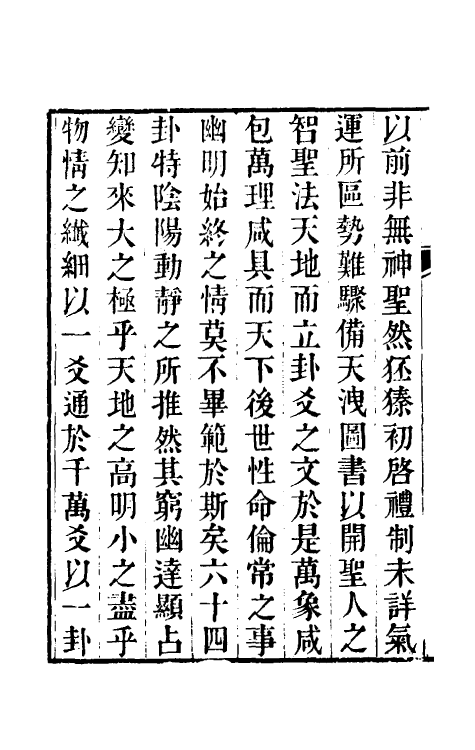 以前非無神聖然狉獉初啓禮制未詳氣
運所區勢難驟備天洩圖書以開聖人之
智聖法天地而立卦爻之文於是萬象咸
包萬理咸具而天下後世性命倫常之事
幽明始終之情莫不畢範於斯矣六十四
卦特陰陽動靜之所推然其窮幽達顯占
變知來大之極乎天地之高明小之盡乎
物情之纖細以一爻通於千萬爻以一卦